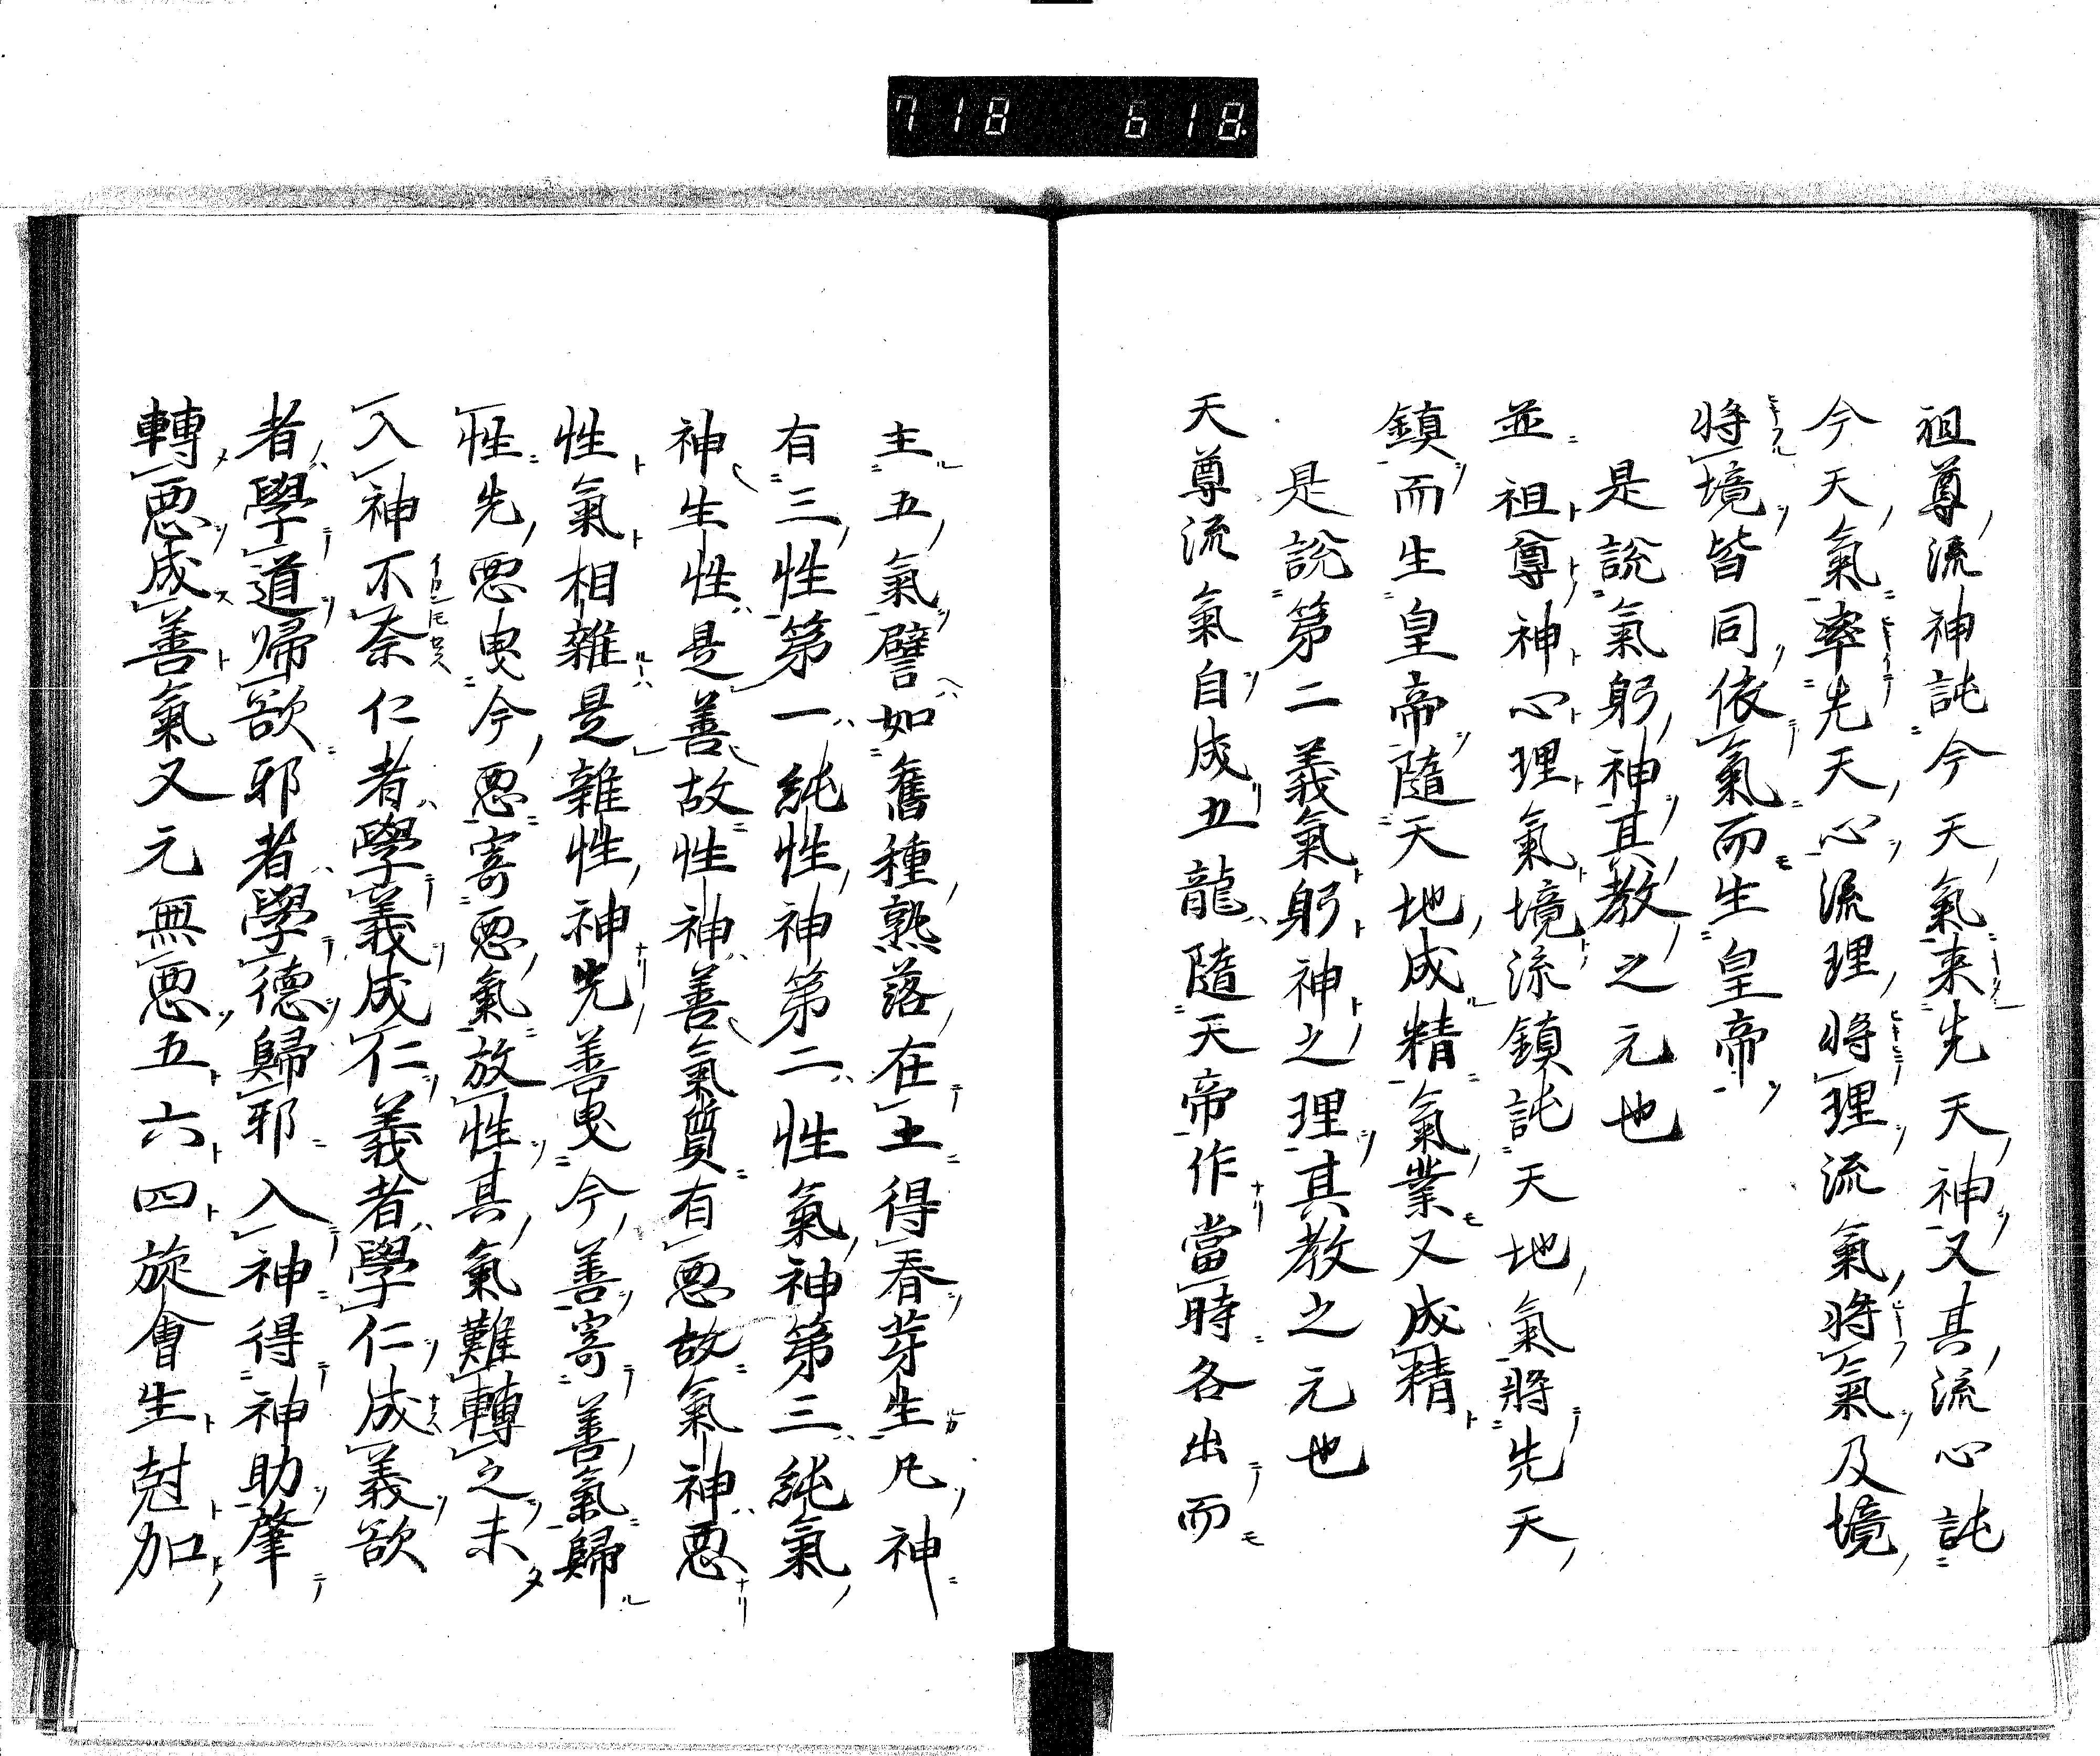 718 618
祖尊流神詑今天氣来先天神又其流心詑
今天氣率先天心流理將理流氣將氣及境
將境皆同依氣而生皇帝
是說氣躬神其教之元也
並祖尊神心理氣境流鎮詑天地氣將先天
鎮而生皇帝隨天地成精氣業又成精
是說第二義氣躬神之理其教之元也
天尊流氣自成五龍隨天帝作當時各出而
主五氣譬如舊種熟落在土得春芽生凡神
有三性第一純性神第二性氣神第三純氣
神生性是善故性神善氣質有悪故氣神悪
性氣相雜是雜性神先善曳今善寄善氣歸
性先悪曳今悪寄悪氣放性其氣難轉之未
入神不奈仁者學義成仁義者學仁成義欲
者學道帰欲邪者學德歸邪入神得神助肇
轉悪成善氣又元無悪五六四旋會生尅加